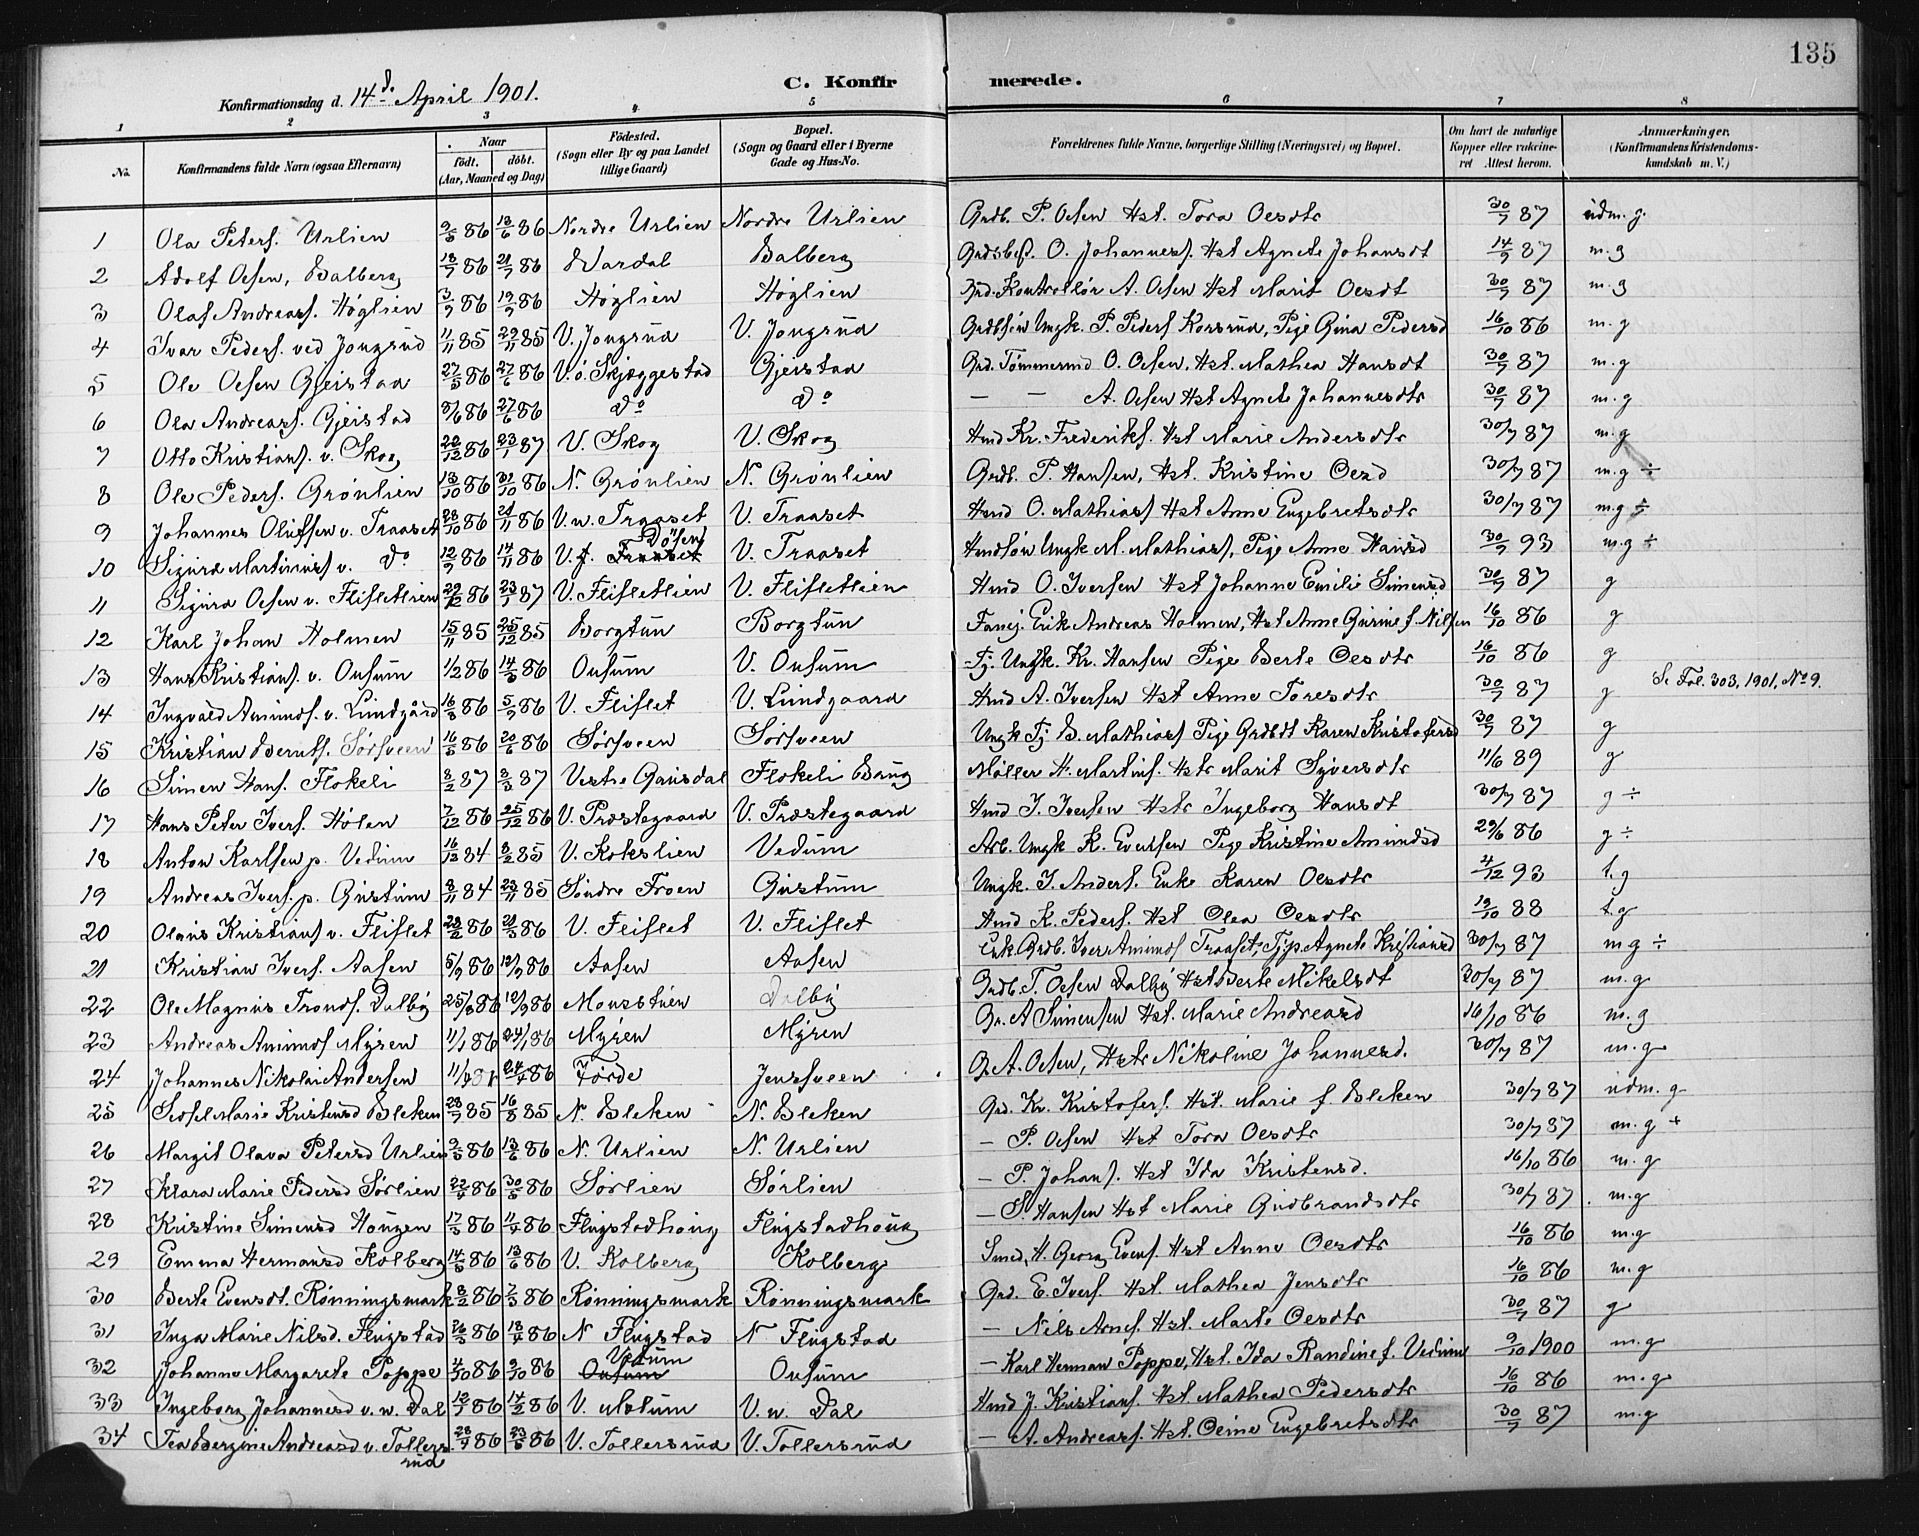 135
Konfirmationsdag d. 14de April 1901.
C. Konfirmerede.
1 2 3 4 5 6 7 8
No. Konfirmandens fulde Navn (ogsaa Efternavn) Naar født. døbt. (Aar, Maaned og Dag) Fødested. (Sogn eller By og paa Landet tillige Gaard) Bopæl. (Sogn og Gaard eller i Byerne Gade og Hus-No. Forældrenes fulde Navne, borgerlige Stilling (Næringsvei) og Bopæl. Om havt de naturlige Kopper eller vakcineret Attest herom. Anmærkninger. (Konfirmandens Kristendomskundskab m. V.)
1 Ola Peters. Urlien 9/5 86 13/6 86 Nordre Urlien Nordre Urlien Grdb. P. Olsen Hst. Tora Olsdtr 30/7 87 udm. g.
2 Adolf Olsen, Balberg 18/7 86 21/7 86 Vardal Balberg O. Johanness. Hst Agnete Johansdt 14/9 87 m. g
3 Olaf Andreass. Høglien 3/9 86 19/9 86 Høglien Høglien Kontrollør A. Olsen Hst Marit Olsdt 30/7 87 m. g
4 Ivar Peders. ved Jongsrud 11/11 85 29/11 85 V. Jongsrud V. Jongsrud Grdbsøn Ungk. P. Peders Korsrud, Pige Gina Pedersd 16/10 86 m. g
5 Ole Olsen Gjeistad 27/5 86 27/6 86 V. ö. Skjæggestad Gjeistad Grd. Tømmermd O. Olsen. Hst. Mathea Hansdt 30/7 87 m. g
6 Ola Andreass. Gjeistad 8/6 86 27/6 86 do do — — A. Olsen Hst Agnete Johannesdtr 30/7 87 m. g
7 Otto Kristians. v. Skog 22/12 86 23/1 87 V. Skog V. Skog Hmd Kr. Frederiks. Hst Marie Andersdtr 30/7 87 m. g
8 Ole Peders. Grønlien 13/10 86 31/10 86 N. Grønlien N. Grønlien Grdb. P. Hansen, Hst. Kristine Olsd 30/7 87 m. g ÷
9 Johannes Olufsen v. Traaset 28/10 86 21/11 86 V. n. Traaset V. Traaset Hmd O. Mathiass Hst Anne Engebretsdtr 30/7 87 m. g ÷
10 Sigurd Martinius v. do 12/9 86 14/11 86 V. Traaset V. Traaset Hmdsøn Ungk M. Mathiass, Pige Anne Hansd 30/7 93 m. g ÷
11 Sigurd Olsen v. Flifletlien 22/12 86 23/1 87 V. Flifletlien V. Flifletlien Hmd O. Iversen Hst Johanne Emilie Simensd 30/7 87 g
12 Karl Johan Holmen 15/11 85 25/12 85 Borgtun Borgtun Erik Andreas Holmen, Hst Anne Gurine f. Nilsen 16/10 86 g
13 Hans Kristians. v. Onsum 1/2 86 14/3 86 Onsum V. Onsum Tj. Ungk. Kr. Hansen Pige Berte Olsdtr 16/10 86 g
14 Ingvald Amunds. v. Lundgård 16/8 86 5/9 86 V. Fliflet V. Lundgaard Hmd A. Iversen Hst Anne Toresdtr 30/7 87 g Se Fol. 303, 1901, No 9.
15 Kristian Berntf. Sørsveen 16/5 86 20/6 86 Sørsveen Sørsveen Ungk Tj B. Mathiass Pige Grdbdt Karen Kristofersd 30/7 87 g
16 Simen Hans. Flokeli 8/2 87 3/3 87 Vestre Gausdal Flokeli Baug Møller H. Martins. Hstr Marit Syversdtr 11/6 89 g
17 Hans Peter Ivers. Hølen 7/12 86 25/12 86 V. Præstegaard V. Præstegaard Hmd I. Iversen Hstr Ingeborg Hansdt 30/7 87 g ÷
18 Anton Karlsen p. Vedum 16/12 84 8/2 85 V. Kokslien Vedum Arb. Ungk K. Evensen Pige Kristine Amundsd 29/6 86 g ÷
19 Andreas Ivers. p. Gustum 8/11 84 22/11 85 Søndre Froen Gustum Ungk. I. Anders. Enke Karen Olsdtr 4/12 93 t. g
20 Olaus Kristians v. Fliflet 28/2 86 21/3 86 V. Fliflet V. Fliflet Hmd K. Peders. Hst Olea Olsdtr 19/10 88 t. g
21 Kristian Ivers. Aasen 5/9 86 19/9 86 Aasen Aasen Enk. Grdb. Iver Amunds Traaset, Tjp. Agnete Kristiansd 30/7 87 m g ÷
22 Ole Magnus Tronds. Dalby 25/8 86 12/9 86 Dalby Grdb. T. Olsen Dalby Hst Berte Mikelsdt 30/7 87 m. g
23 Andreas Amunds Myren 11/1 86 24/1 86 Myren Myren Gr. A Simensen Hst. Marie Andreasd 16/10 86 m. g
24 Johannes Nikolai Andersen Førde Jensveen G. A. Olsen, Hstr Nikoline Johannesd. 30/7 87 m. g
25 Sofie Marie Kristensd Bleken 28/7 85 16/8 85 N. Bleken N. Bleken Grd. Kr. Kristofers. Hst. Marie f Bleken 30/7 87 udm. g
26 Margit Olava Petersd Urlien 9/5 86 13/6 86 N. Urlien N. Urlien — P. Olsen Hst Tora Olsdtr 30/7 87 m. g +
27 Klara Marie Pedersd Sørlien 22/4 86 30/5 86 Sørlien Sørlien — P. Johans. Hst Ida Kristensd. 16/10 86 m. g
28 Kristine Simensd Hougen 17/3 86 11/4 86 Flugstadhoug Flugstadhoug — S. Hansen Hst Marie Gudbrandsdtr 30/7 87 m. g
29 Emma Hermansd Kolberg 14/5 86 13/6 86 V. Kolberg Kolberg Smed, H. Georg Evens. Hst Anne Olsdtr 16/10 86 m. g
30 Berte Evensdt. Rønningsmark 8/2 86 7/3 86 Rønningsmark Rønningsmark Grd. E. Ivers. Hst Mathea Jensdtr 16/10 86 m. g
31 Inga Marie Nilsd. Flugstad 26/3 86 18/4 86 N Flugstad N Flugstad — Nils Arnes. Hst. Marte Olsdtr 30/7 87 g
32 Johanne Margarete Poppe 4/10 86 9/10 86 Onsum Vedum Onsum — Karl Herman Poppe, Hst. Ida Randine f. Vedum 9/10 1900 m. g
33 Ingeborg Johannesd v. n. Dal 12/1 86 14/2 86 V. Motum V. n. Dal Hmd J. Kristians. Hst Mathea Pedersdtr 16/10 86 m. g
34 Tea Bergine Andreasd v. Tollersrud 28/4 86 23/5 86 V. Tollersrud V. Tollersrud — A. Andreass. Hst. Oline Engebretsdtr 30/7 87 m. g